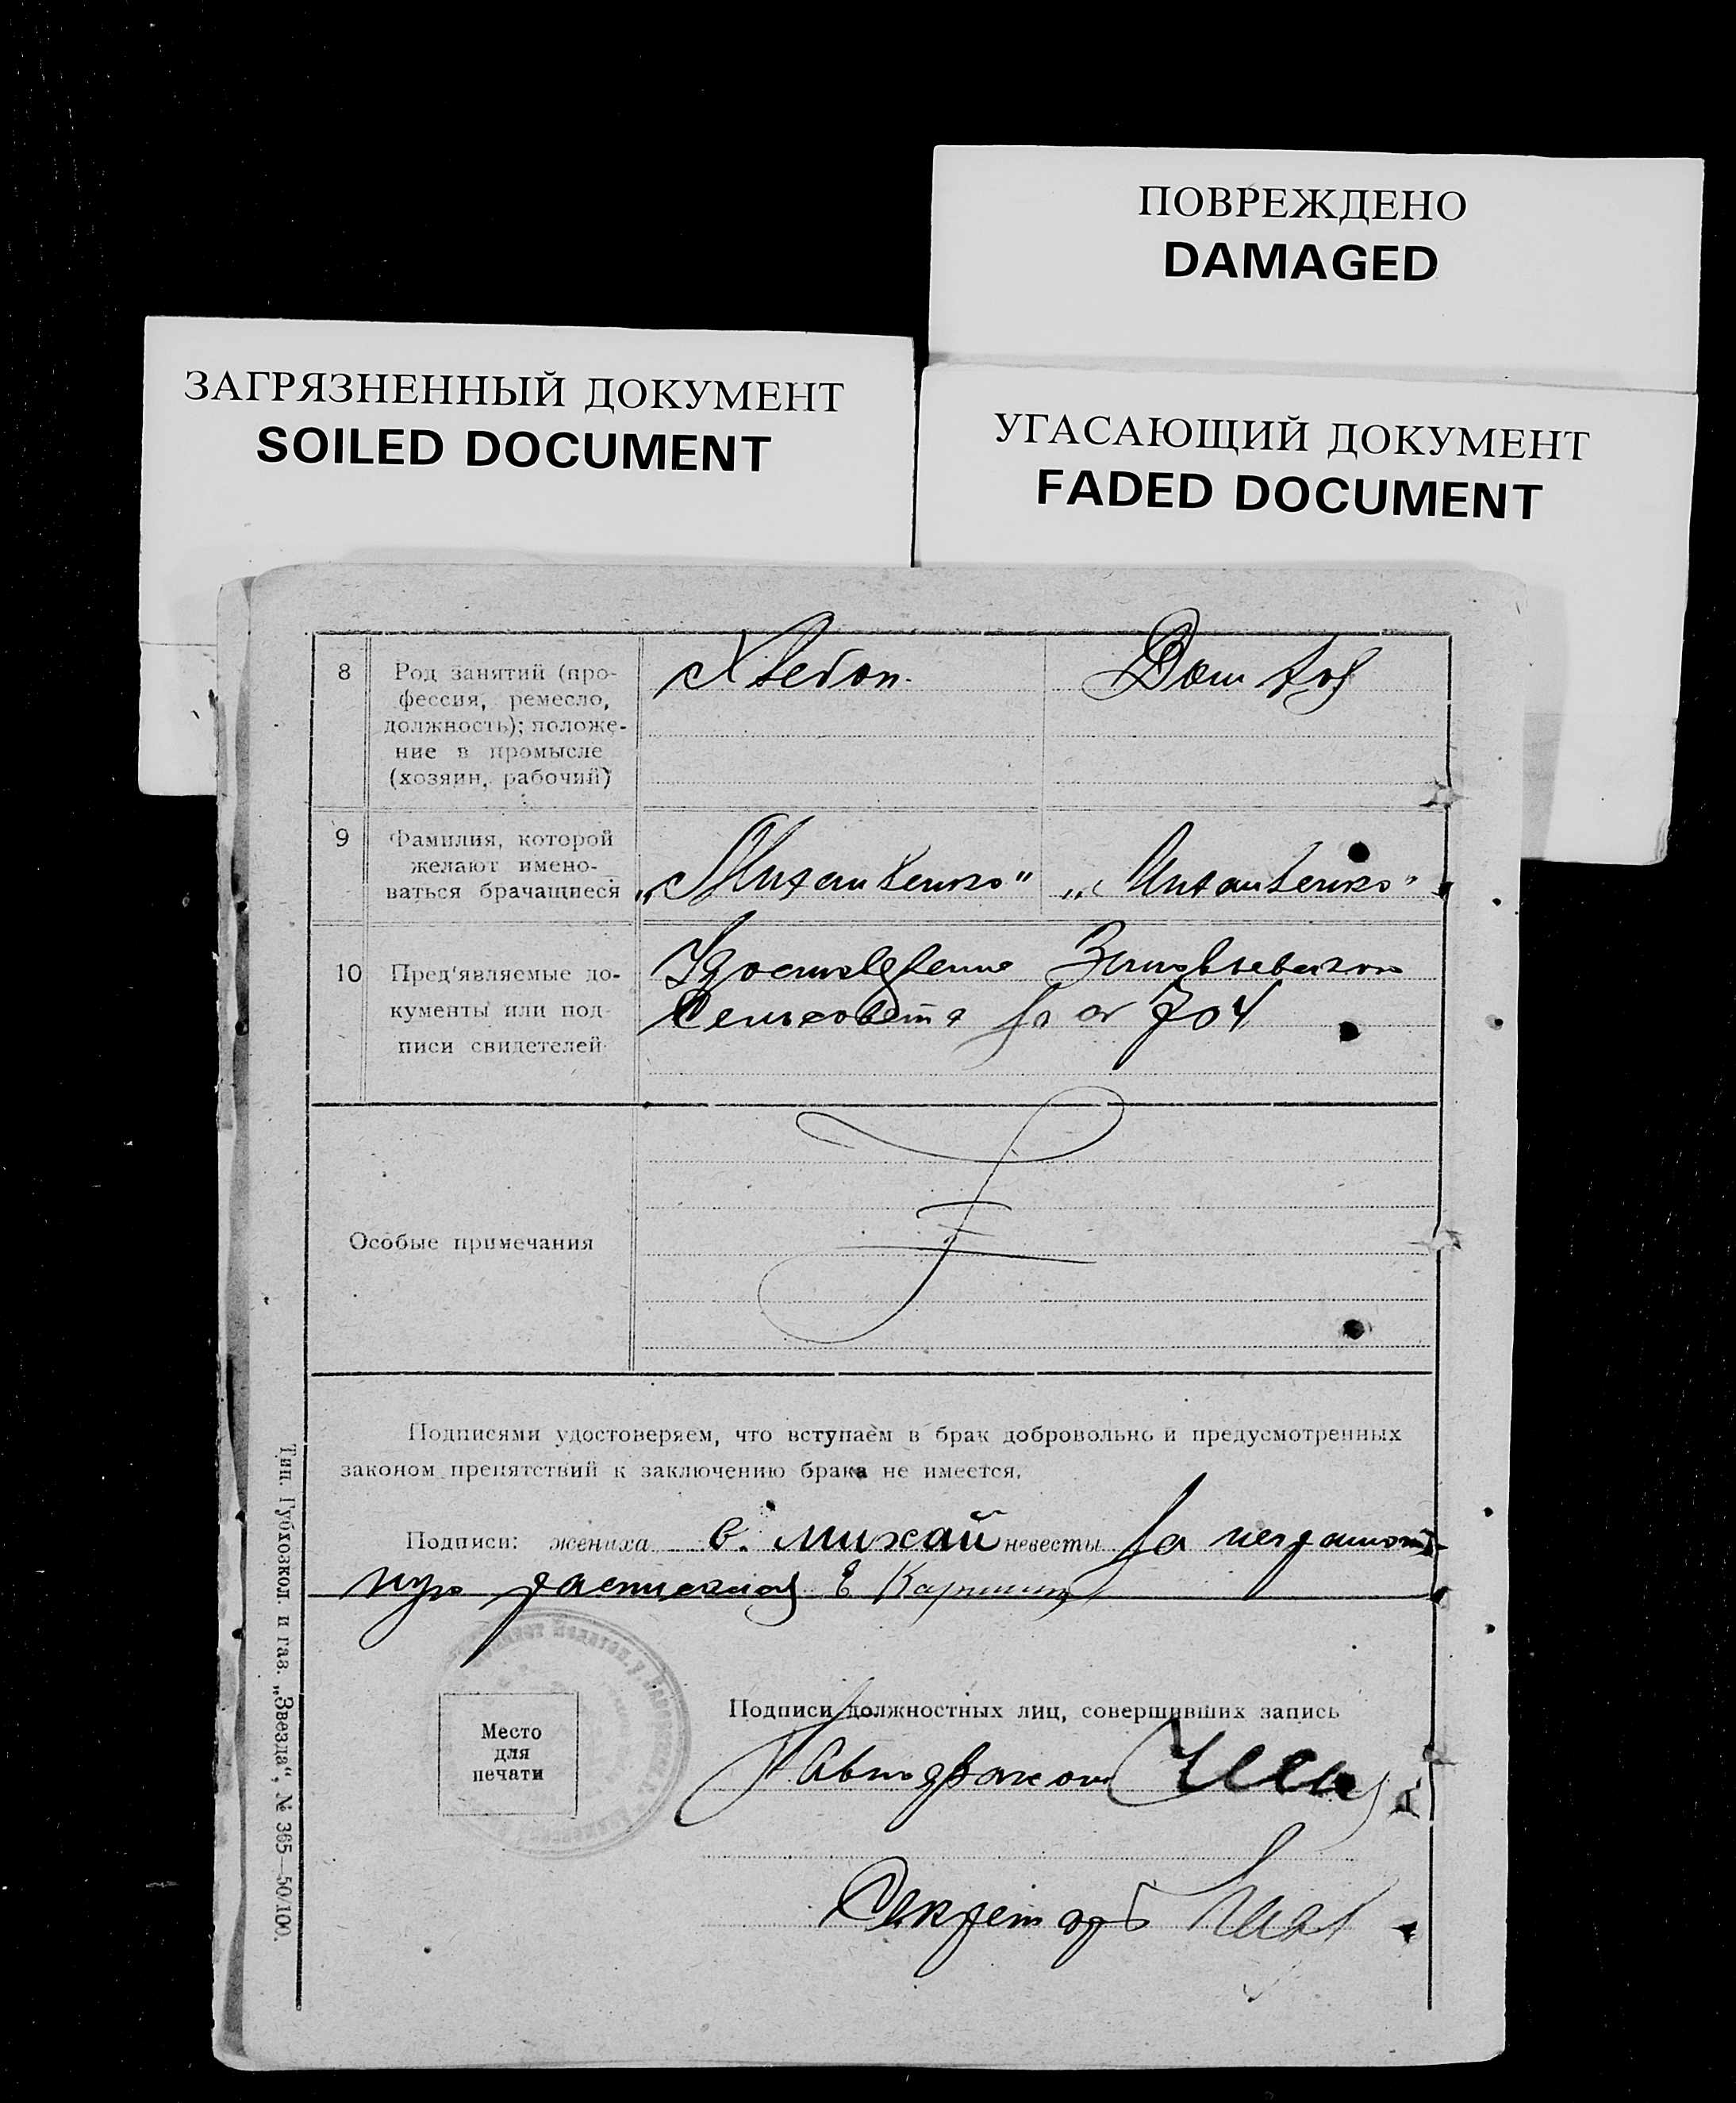 ПОВРЕЖДЕНО
DAMAGED
ЗАГРЯЗНЕННЫЙ ДОКУМЕНТ
SOILED DOCUMENT
УГАСАЮЩИЙ ДОКУМЕНТ
FADED DOCUMENT
8 Род занятий (про-
фессия, ремесло,
должность); положе-
ние в промысле
(хозяин, рабочий)
Хлебоп. Дом хоз
9 Фамилия, которой
желают имено-
ваться брачащиеся
„Михайленко" „Михайленко"
10 Пред'являемые до-
кументы или под-
писи свидетелей
Удостоверение Зиновьевского
Сельсовета за № 704
Особые примечания
Подписями удостоверяем, что вступаем в брак добровольно и предусмотренных
законом препятствий к заключению брака не имеется.
Подписи: жениха в. михай невесты за неграмот
ную расписался Е
Место
для
печати
Подписи должностных лиц, совершивших запись
Секретарь
Тип. Губхозкол. и газ. „Звезда", № 365—50/100.